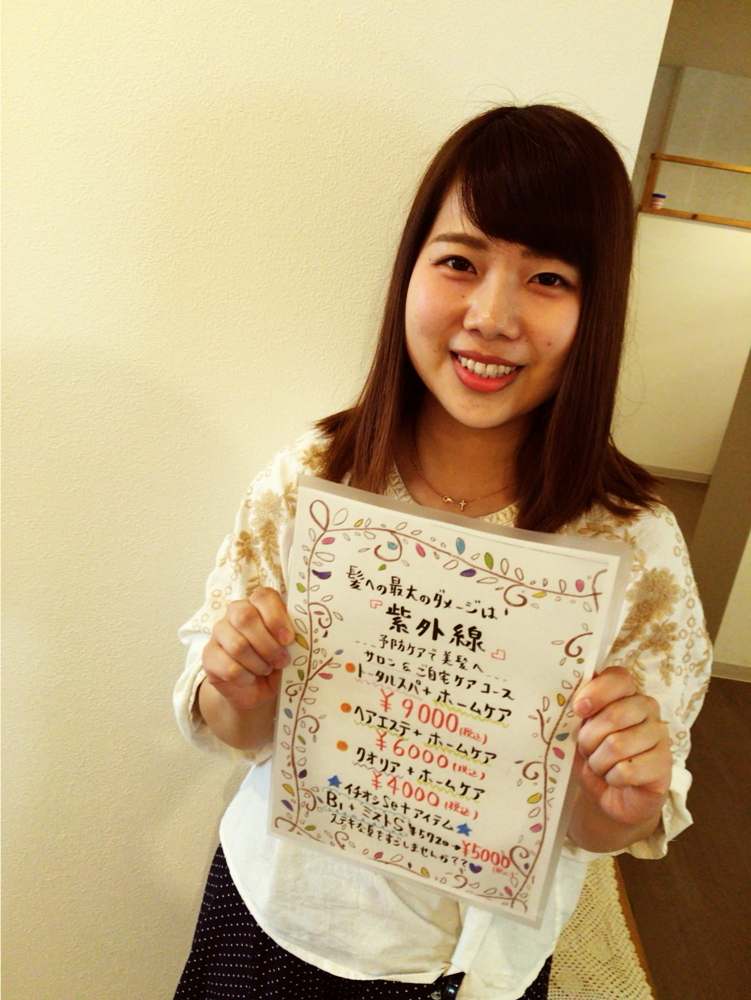 髪への最大のダメージは
『紫外線』
---予防ケアで美髪へ---
サロン&ご自宅ケアコース
トータルスパ+ホームケア
¥9000(税込)
ヘアエステ+ホームケア
¥6000(税込)
クオリア+ホームケア
¥4000(税込)
★イチオシSetアイテム★
B1+ミストS ¥5720→¥5000(税込)
ステキな夏をすごしませんか??